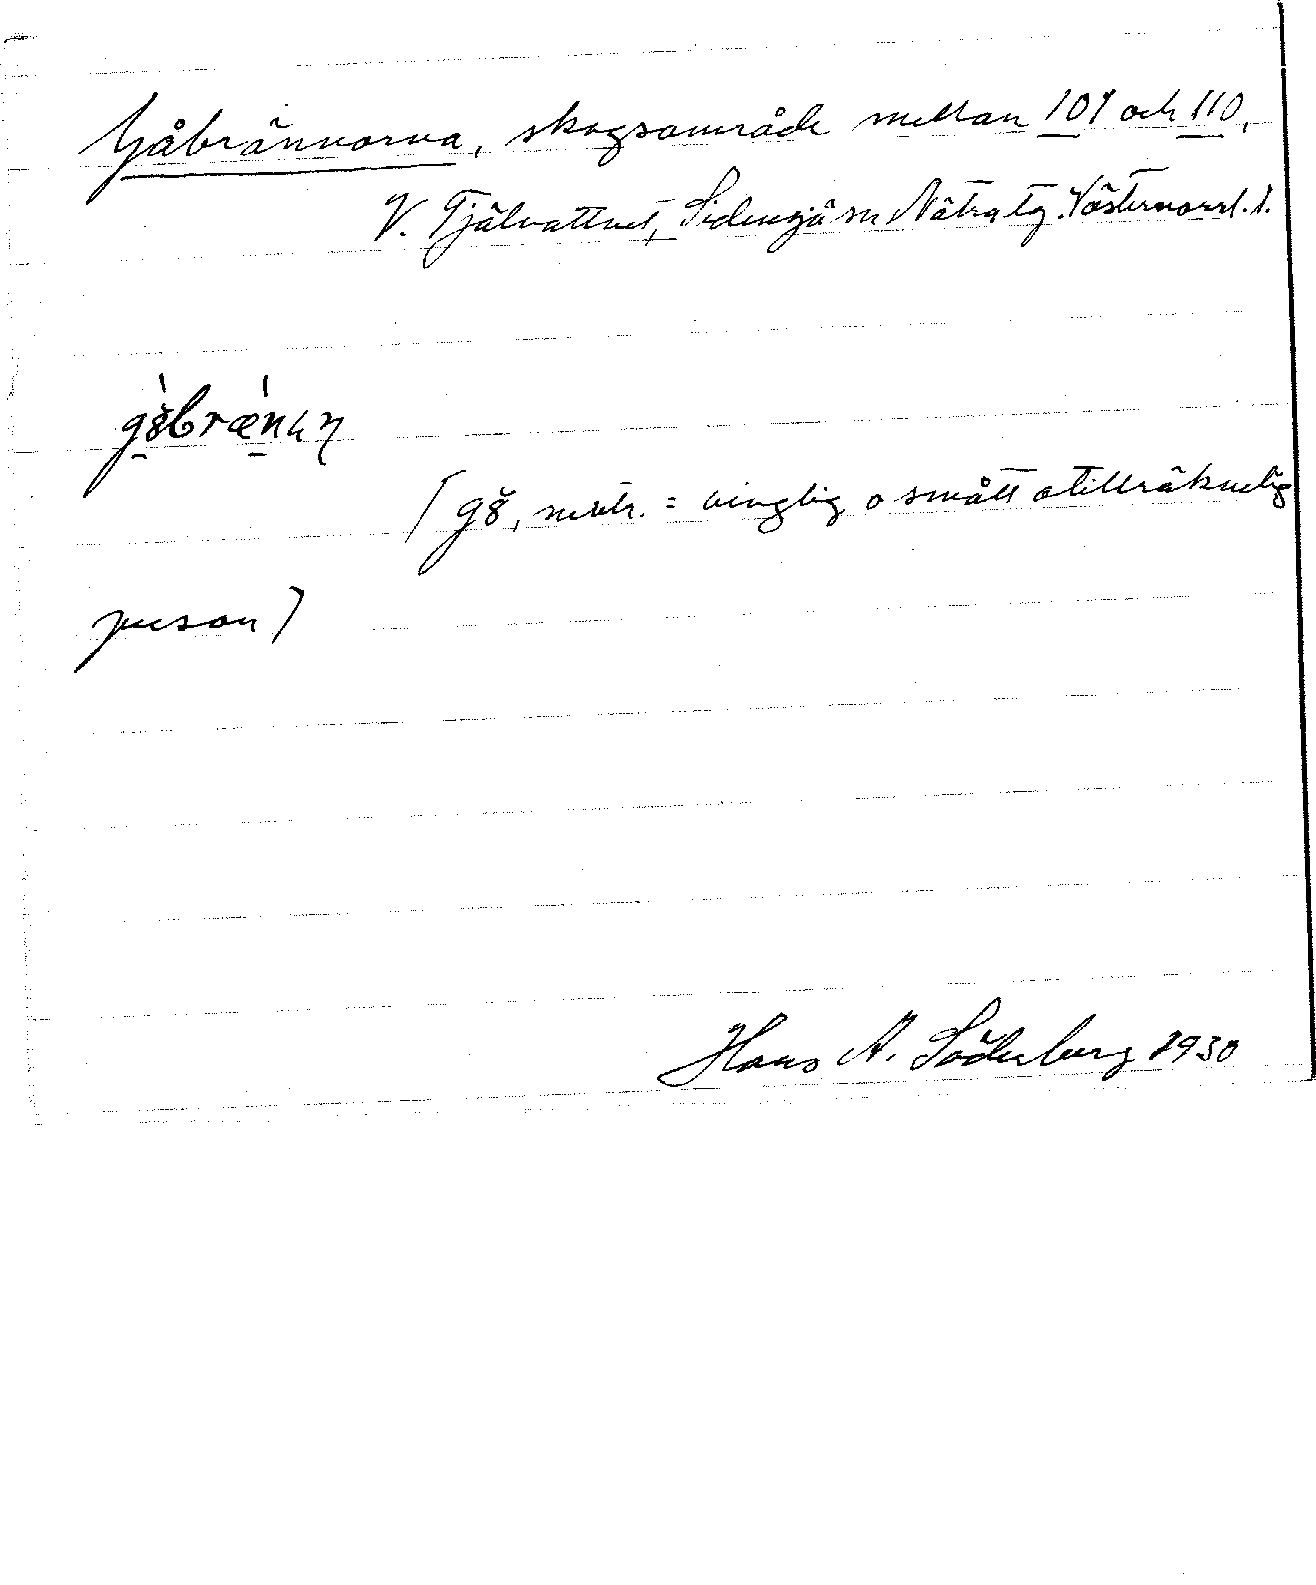 Gåbrännorna, skogsområde mellan 109 och 110,
V. Fjälvattnet, Sidensjö sn Nätra tg. Västernorrl. l.
( neutr. = vinglig o smått otillräknelig
person)
Hans A. Söderberg 1930